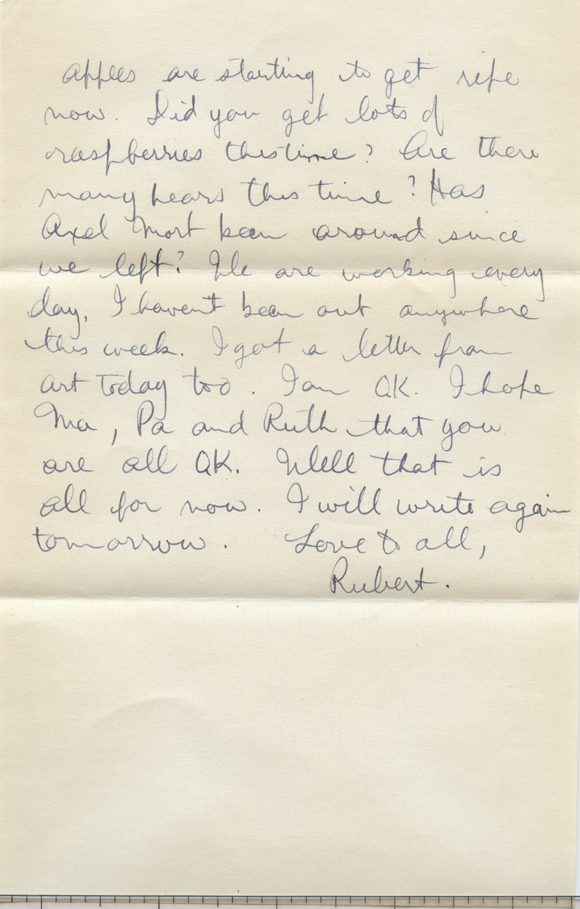 apples are starting to get ripe
now. Did you get lots of
raspberries this time? Are there
many bears this time? Has
Axel Mort been around since
we left? We are working every
day, I haven't been out anywhere
this week. I got a letter from
Art today too. I am OK. I hope
Ma, Pa and Ruth that you
are all OK. Well that is
all for now. I will write again
tomorrow. Love to all,
Rubert.